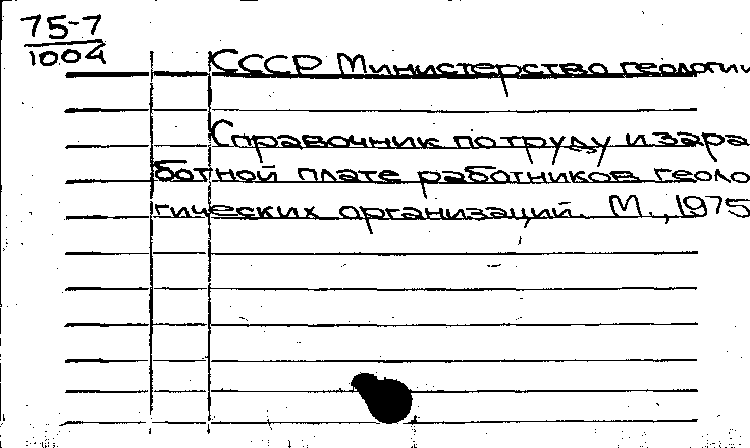 75-7
1004
СССР Министерство геологии
Справочник по труду и зара
ботной плате работников геоло
гических организаций. М., 1975